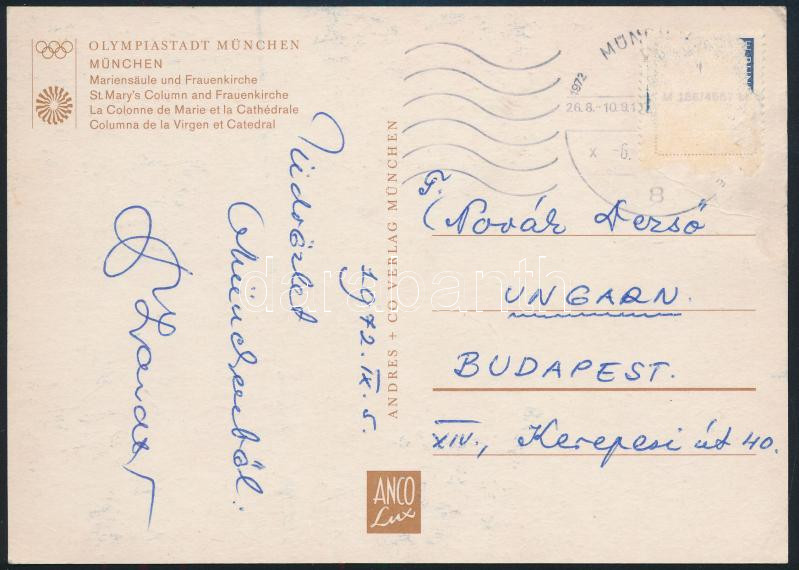 OLYMPIASTADT MÜNCHEN
MÜNCHEN
Mariensäule und Frauenkirche
St. Mary's Column and Frauenkirche
La Colonne de Marie et la Cathédrale
Columna de la Virgen et Catedral
Üdvözlet
Münchenből.
1972. IX. 5.
ANDRES + CO VERLAG MÜNCHEN
ANCO
Lux
1972
26.8.-10.9.1
x -6.
8
F.
Novák Dezső
UNGARN.
BUDAPEST.
XIV., Kerepesi út 40.
darabanth